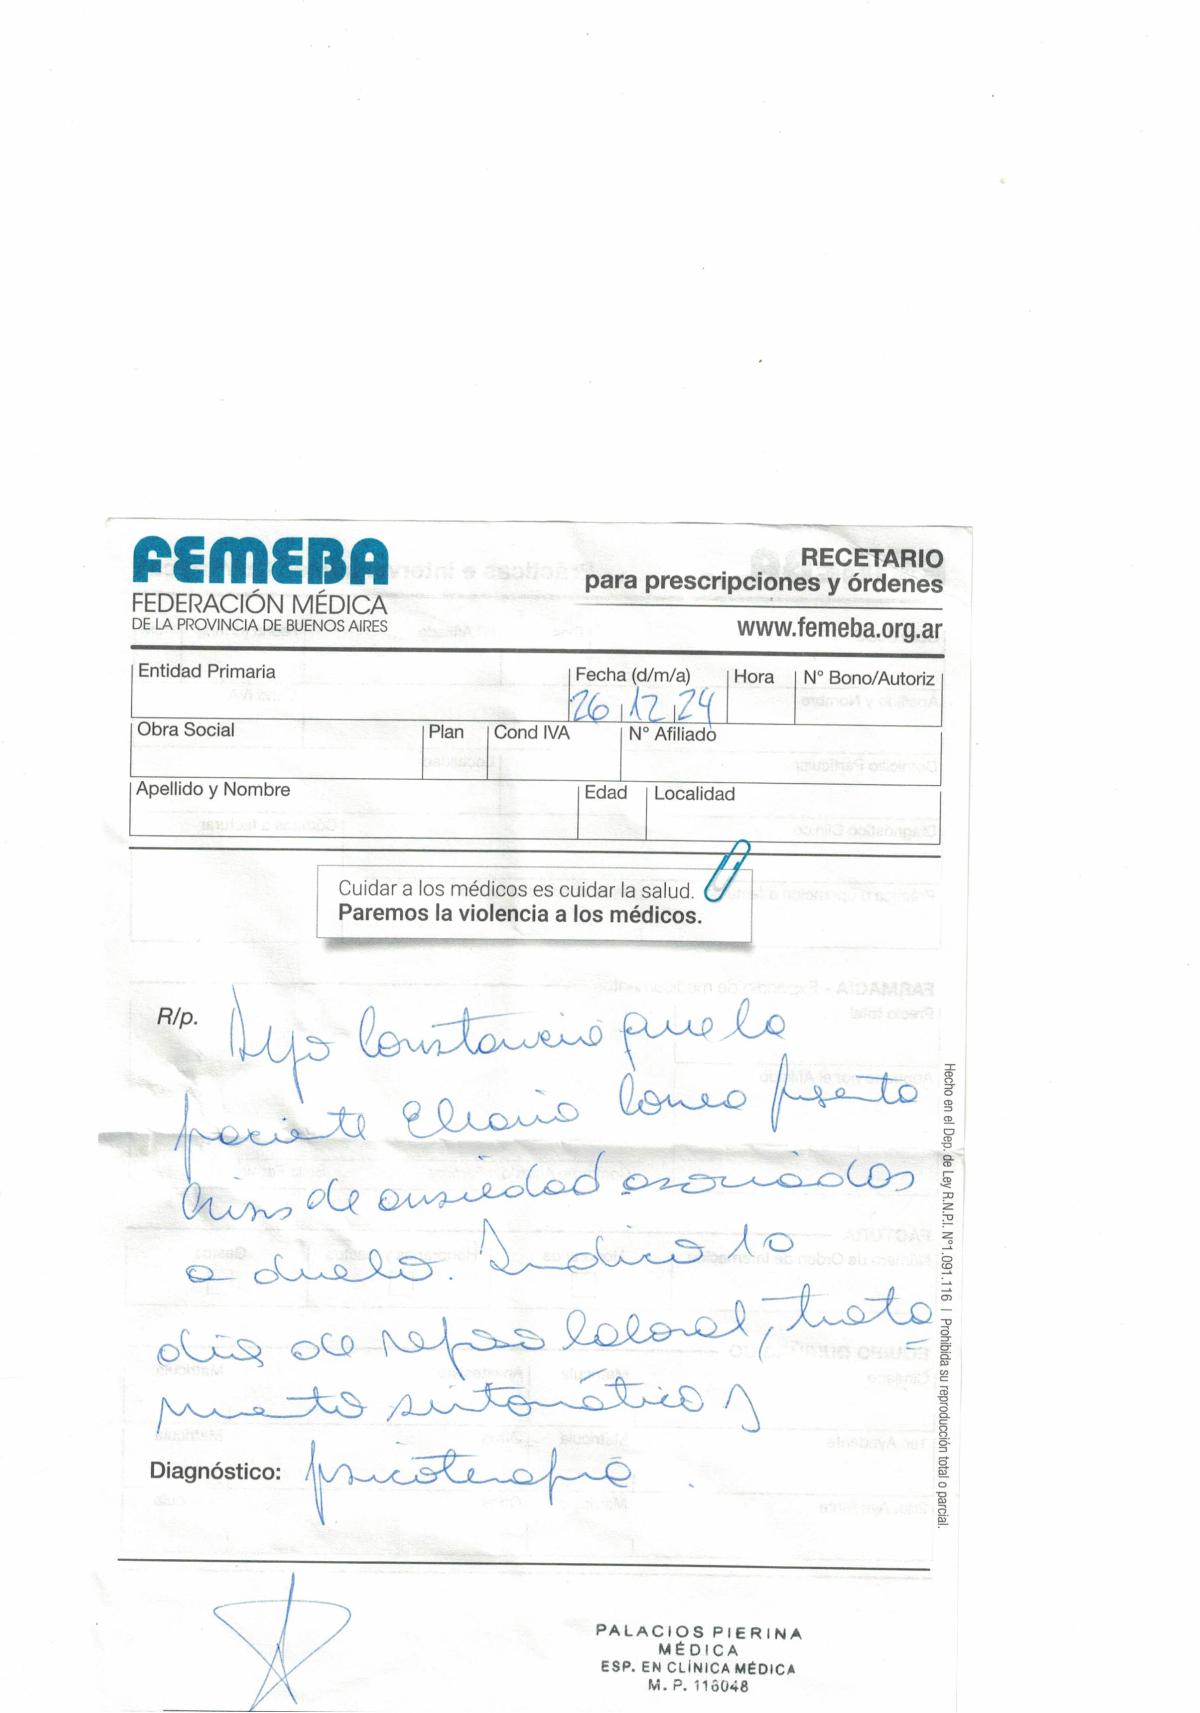 FEMEBA
FEDERACIÓN MÉDICA
DE LA PROVINCIA DE BUENOS AIRES
RECETARIO
para prescripciones y órdenes
www.femeba.org.ar
Entidad Primaria
Fecha (d/m/a)
Hora
N° Bono/Autoriz
26 12 24
Obra Social
Plan
Cond IVA
N° Afiliado
Apellido y Nombre
Edad
Localidad
Cuidar a los médicos es cuidar la salud.
Paremos la violencia a los médicos.
R/p. Dejo constancia que la
paciente Eliana presenta
crisis de ansiedad asociados
a duelo. Indico 10
días de reposo laboral, trata
miento sintomático y
Diagnóstico: psicoterapia.
Hecho en el Dep. de Ley R.N.P.I. N°1.091.116 | Prohibida su reproducción total o parcial.
PALACIOS PIERINA
MÉDICA
ESP. EN CLÍNICA MÉDICA
M. P. 116048